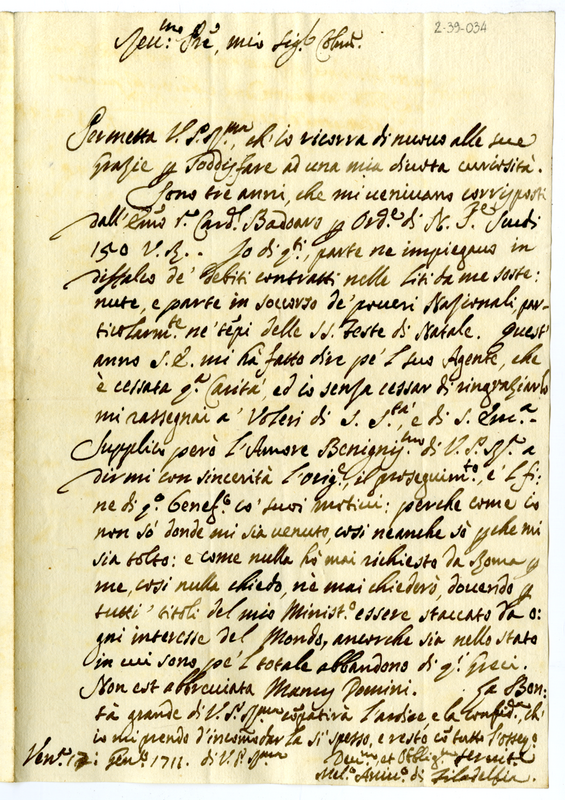 2-39-034
Rev.mo Pre, mio Sig.r Colmo.
Permetta V. P. R.ma, ch'io ricorra di nuovo alle sue
grazie p soddisfare ad una mia divota curiosità.
Sono tre anni, che mi venivano corrisposti
dall'Emo Sr. Card.l Badoaro p Ord.e di N. S.re Scudi
150 V. R.. Io di q.ti, parte ne impiegavo in
diffalco de' debiti contratti nelle liti da me soste:
nute, e parte in soccorso de' poveri Nazionali, par-
ticolarm.te ne' tēpi delle SS. Feste di Natale. Quest'
anno S. E. mi hà fatto dire pe'l suo Agente, che
è cessata q.a Carità, ed io senza cessar di ringraziarlo
mi rassegnai a' Voleri di S. S.tà, e di S. Em.a.
Supplico però l'Amore Benigniss.mo di V. P. R. a
dirmi con sincerità l'orig.e, il proseguim.to, e 'l fi:
ne di q.o benef.o co' suoi motivi: perche come io
non sò donde mi sia venuto, così neanche sò pche mi
sia tolto: e come nulla hò mai richiesto da Roma p
me, così nulla chiedo, nè mai chiederò, dovendo p
tutti i titoli del mio Minist.o essere staccato da o:
gni interesse del Mondo, ancorche sia nello stato
in cui sono, pe'l totale abbandono di q.i Greci.
Non est abbreviata Manus Domini. La Bon:
tà grande di V. P. R.ma cōpatirà l'ardire e la confid.a, ch'
io mi prendo d'incomodarla sì spesso, e resto cō tutto l'osseq.o
Ven.a Gen.o 1711. di V. P. R.ma
Dev.mo et Obblig.mo Serv.e
Mel.o Arciv.o di Filadelfia.